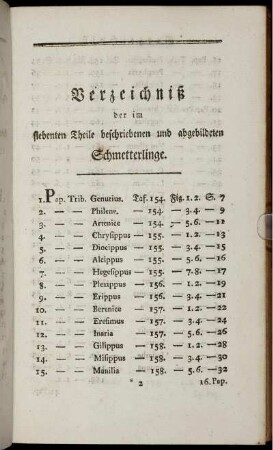 Verzeichniß
der im
siebenten Theile beschriebenen und abgebildeten
Schmetterlinge.
1. Pap. Trib. Genutius. Taf. 154. Fig. 1. 2. S. 7
2. — — Philene. — 154. — 3. 4. — 9
3. — — — 154. — 5. 6. —
4. — — Chrysippus — 155. — 1. 2. — 13
5. — — Diocippus — 155. — 3. 4. — 15
6. — — Alcippus — 155. — 5. 6. — 16
7. — — Hegesippus — 155. — 7. 8. — 17
8. — — Plexippus — 156. — 1. 2. — 19
9. — — Erippus — 156. — 3. 4. — 21
10. — — Berenice — 157. — 1. 2. — 22
11. — — Eresimus — 157. — 3. 4. — 24
12. — — Inaria — 157. — 5. 6. — 26
13. — — Gilippus — 158. — 1. 2. — 28
14. — — Misippus — 158. — 3. 4. — 30
15. — — Manilia — 158. — 5. 6. — 32
* 2 16. Pap.